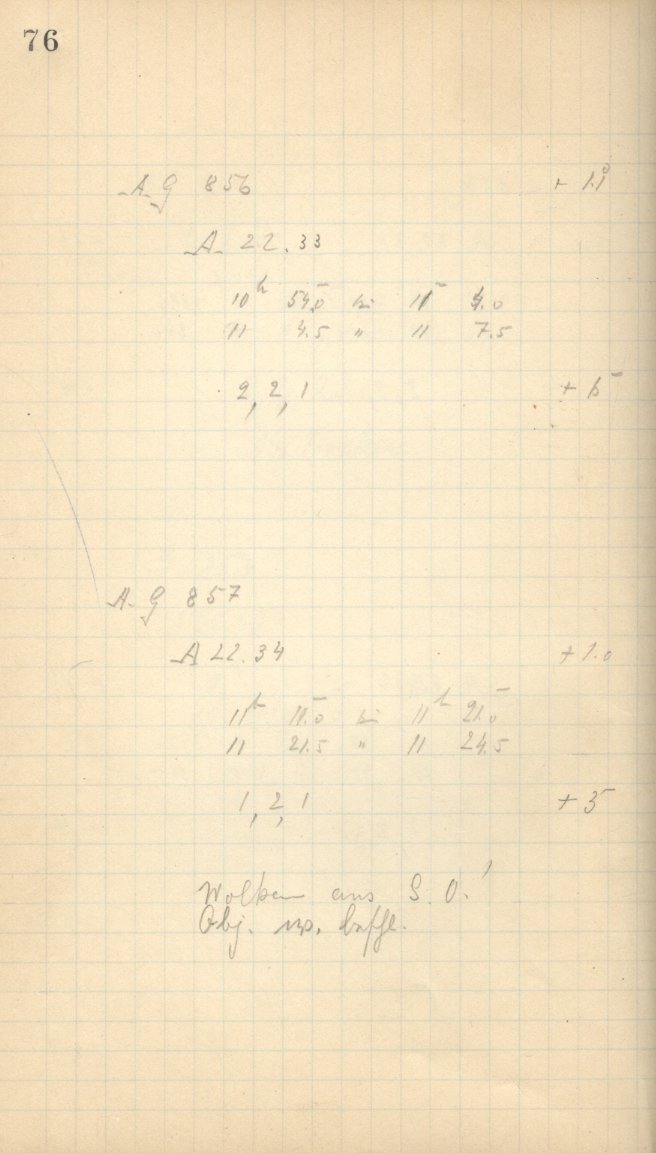 76
A G 856 + 1.1
A 22.33
10h 54.0 bis 11 4.0
11 4.5 " 11 7.5
2, 2, 1 + 6
A. G 857
A 22.34 + 1.0
11h 11.0 bis 11h 21.0
11 21.5 " 11 24.5
1, 2, 1 + 5
Wolken aus S. O.!
Obj. beschl.